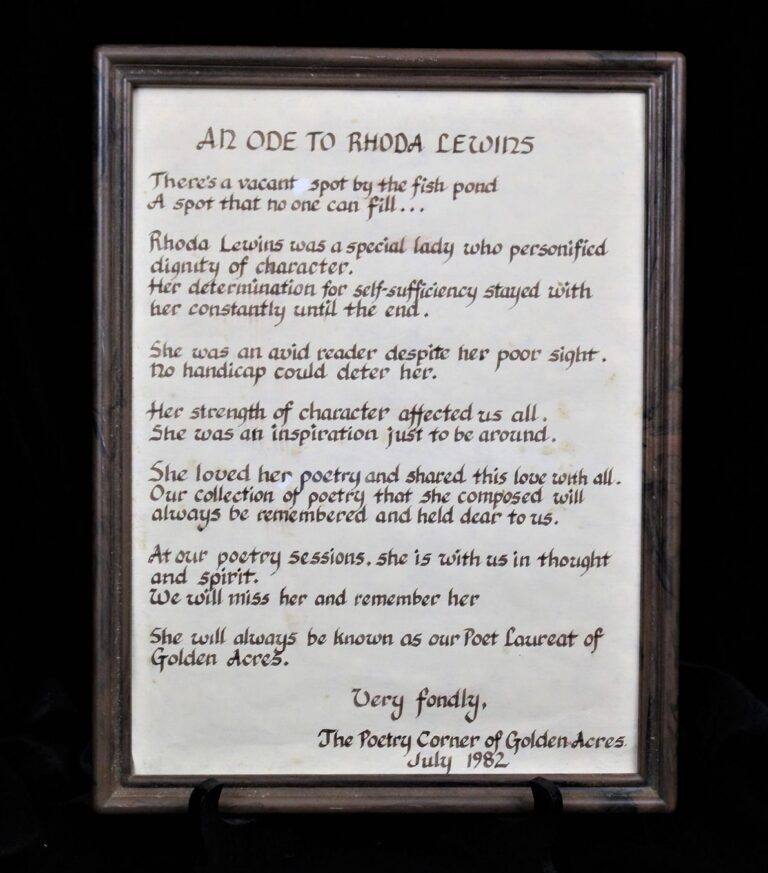 AN ODE TO RHODA LEWINS
There's a vacant spot by the fish pond
A spot that no one can fill...
Rhoda Lewins was a special lady who personified
dignity of character.
Her determination for self-sufficiency stayed with
her constantly until the end.
She was an avid reader despite her poor sight.
No handicap could deter her.
Her strength of character affected us all.
She was an inspiration just to be around.
She loved her poetry and shared this love with all.
Our collection of poetry that she composed will
always be remembered and held dear to us.
At our poetry sessions, she is with us in thought
and spirit.
We will miss her and remember her
She will always be known as our Poet Laureat of
Golden Acres.
Very fondly,
The Poetry Corner of Golden Acres
July 1982